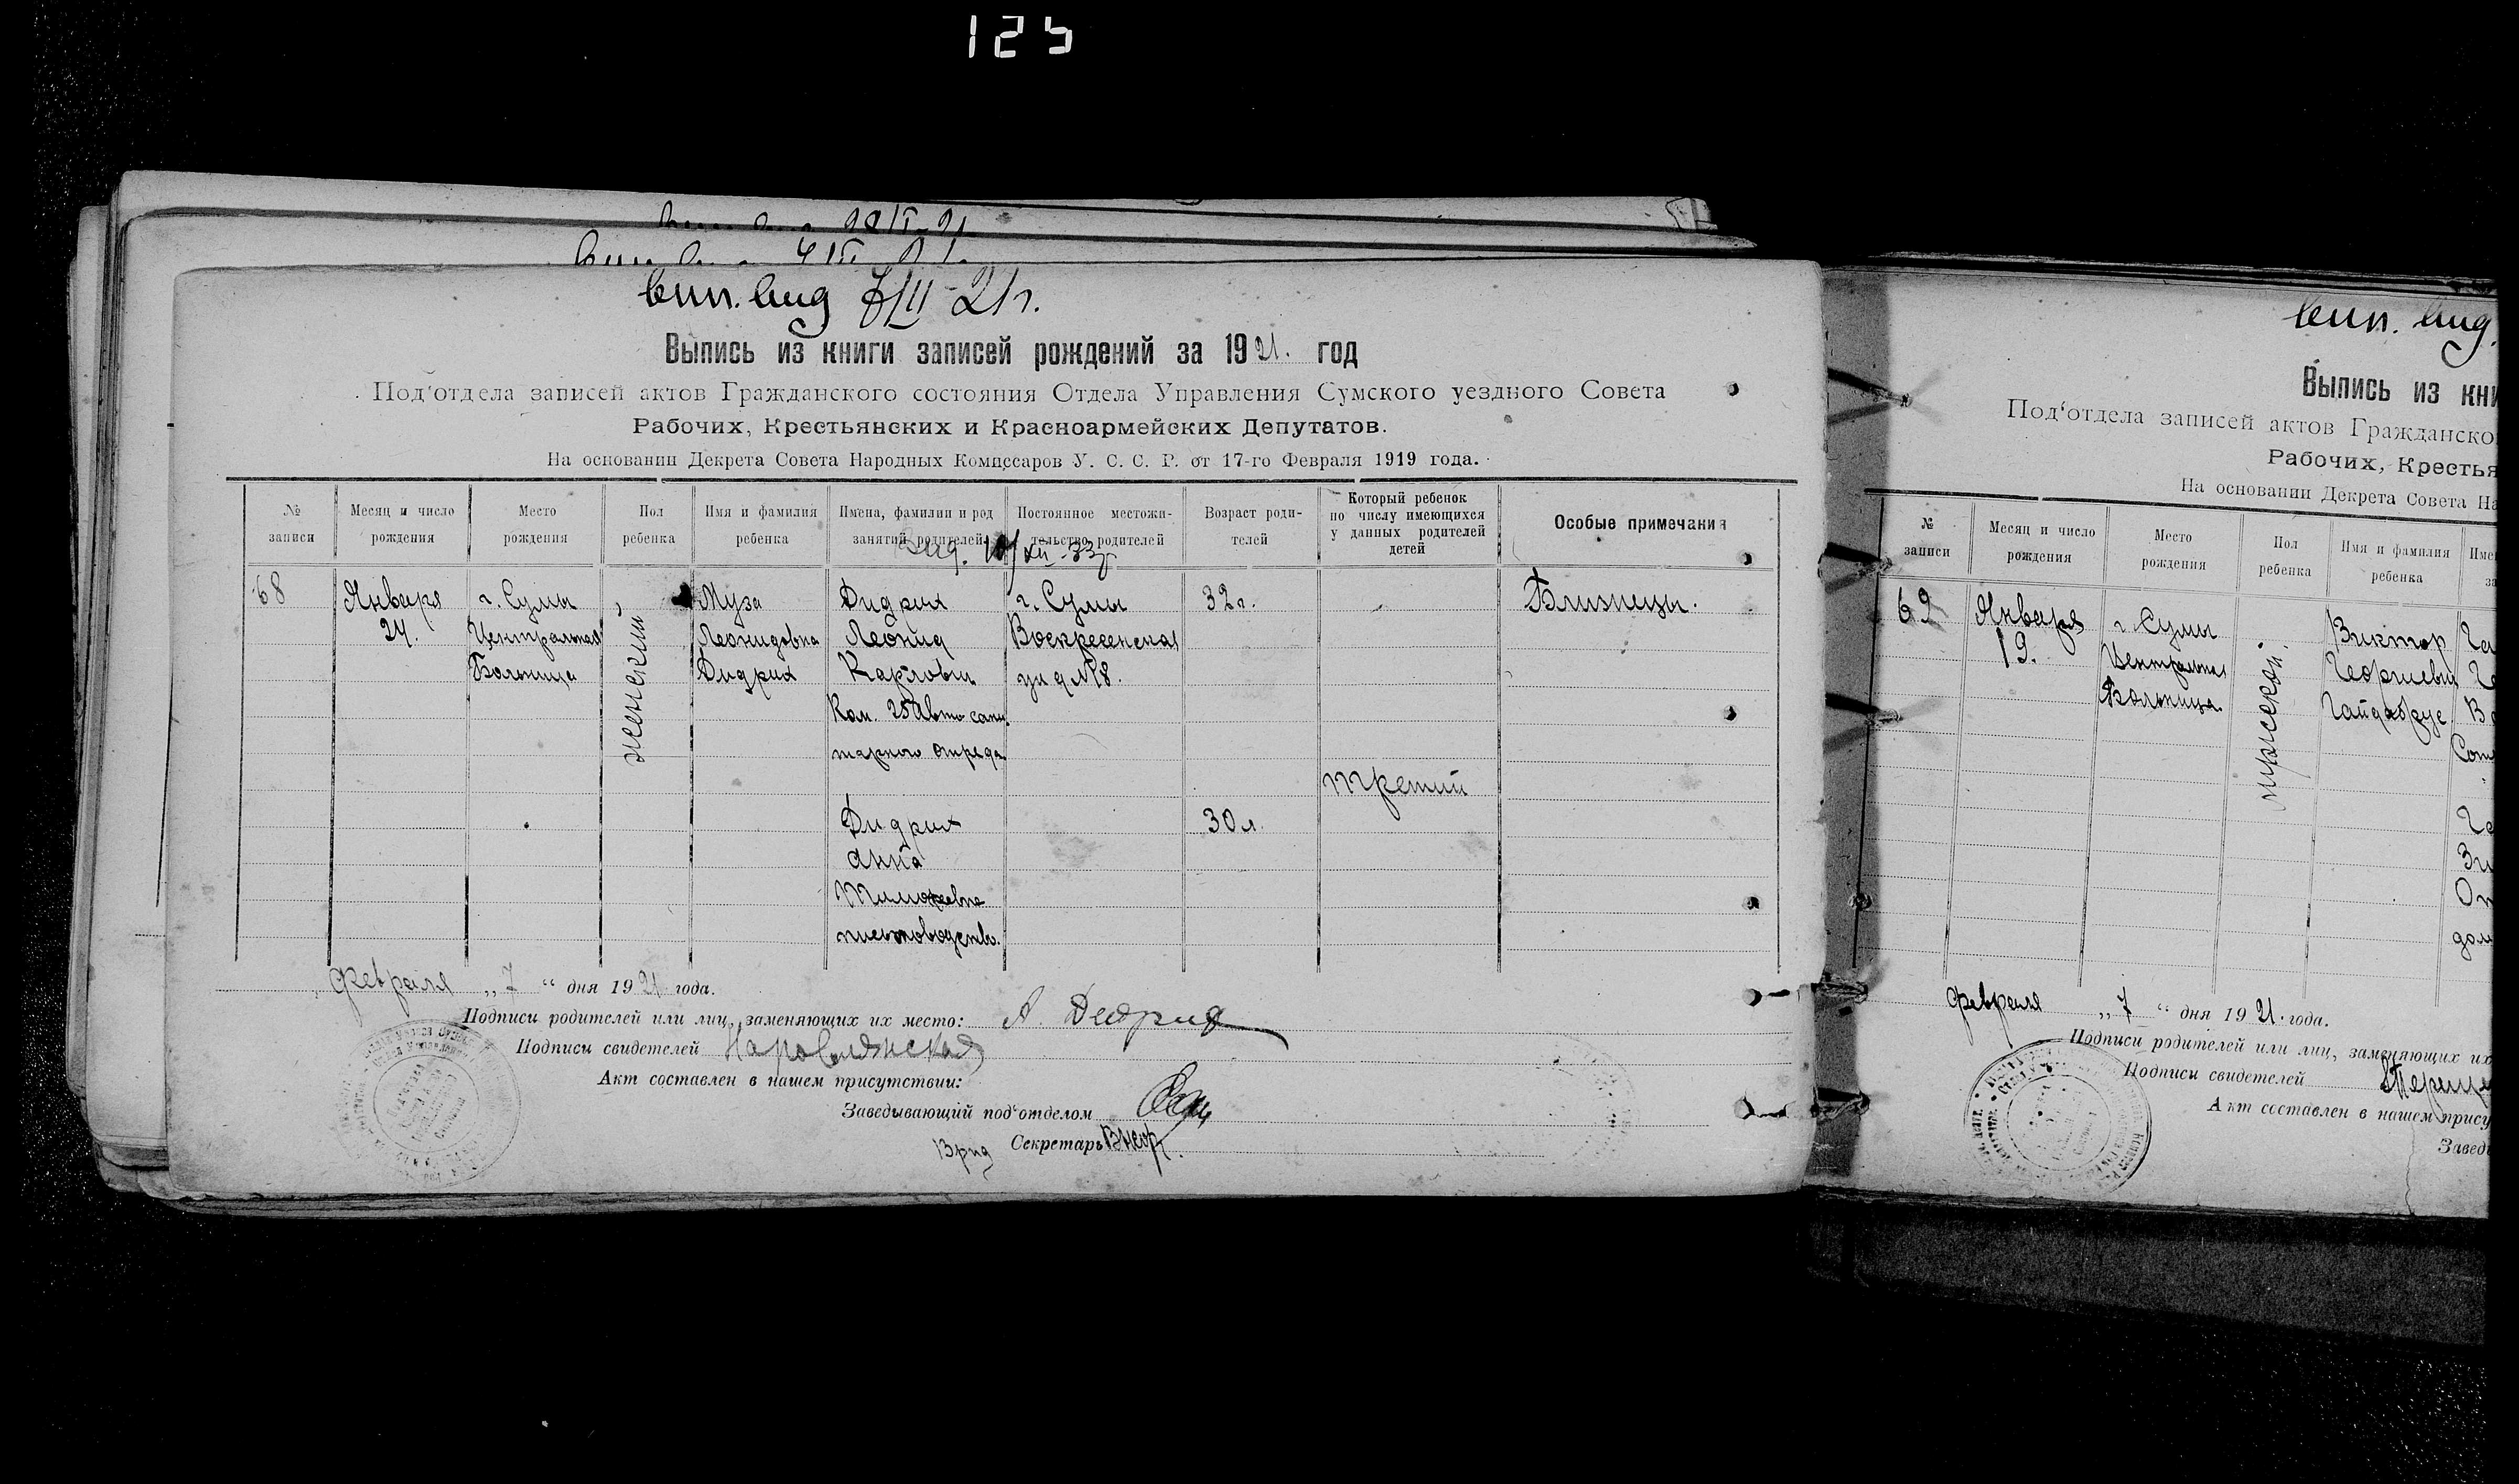 125
вып. выд 7/II 21 г.
Выпись из книги записей рождений за 1921. год
Под‘отдела записей актов Гражданского состояния Отдела Управления Сумского уездного Совета
Рабочих, Крестьянских и Красноармейских Депутатов.
На основании Декрета Совета Народных Комиссаров У. С. С. Р. от 17-го Февраля 1919 года.
№ записи
Месяц и число рождения
Место рождения
Пол ребенка
Имя и фамилия ребенка
Имена, фамилии и род занятий родителей
Постоянное местожительство родителей
Возраст родителей
Который ребенок по числу имеющихся у данных родителей детей
Особые примечания
XII-33г
68
Января
24.
г. Сумы
Центральная
Больница
женский
Муза
Леонидовна
Дидрих
Дидрих
Леонид
Карлович
Ком. 25 Авто сани
тарного отряда
г. Сумы
Воскресенская
ул д №18.
32 г.
третий
Близнецы.
Дидрих
Анна
Тимофеевна
письмоводств.
30 л.
февраля „7“ дня 1921 года.
Подписи родителей или лиц, заменяющих их место: А. Дидрих
Подписи свидетелей
Акт составлен в нашем присутствии:
Заведывающий под‘отделом
Врид Секретарь
вып. выд.
Выпись из кни
Под‘отдела записей актов Гражданско
Рабочих, Крестья
На основании Декрета Совета На
№ записи
Месяц и число рождения
Место рождения
Пол ребенка
Имя и фамилия ребенка
Име
за
69
Января
19.
г. Сумы
Центральная
Больница.
мужской.
Виктор
Георгиевич
Гайдабрус
февраля „7“ дня 1921. года.
Подписи родителей или лиц, заменяющих их
Подписи свидетелей
Акт составлен в нашем прису
Завед